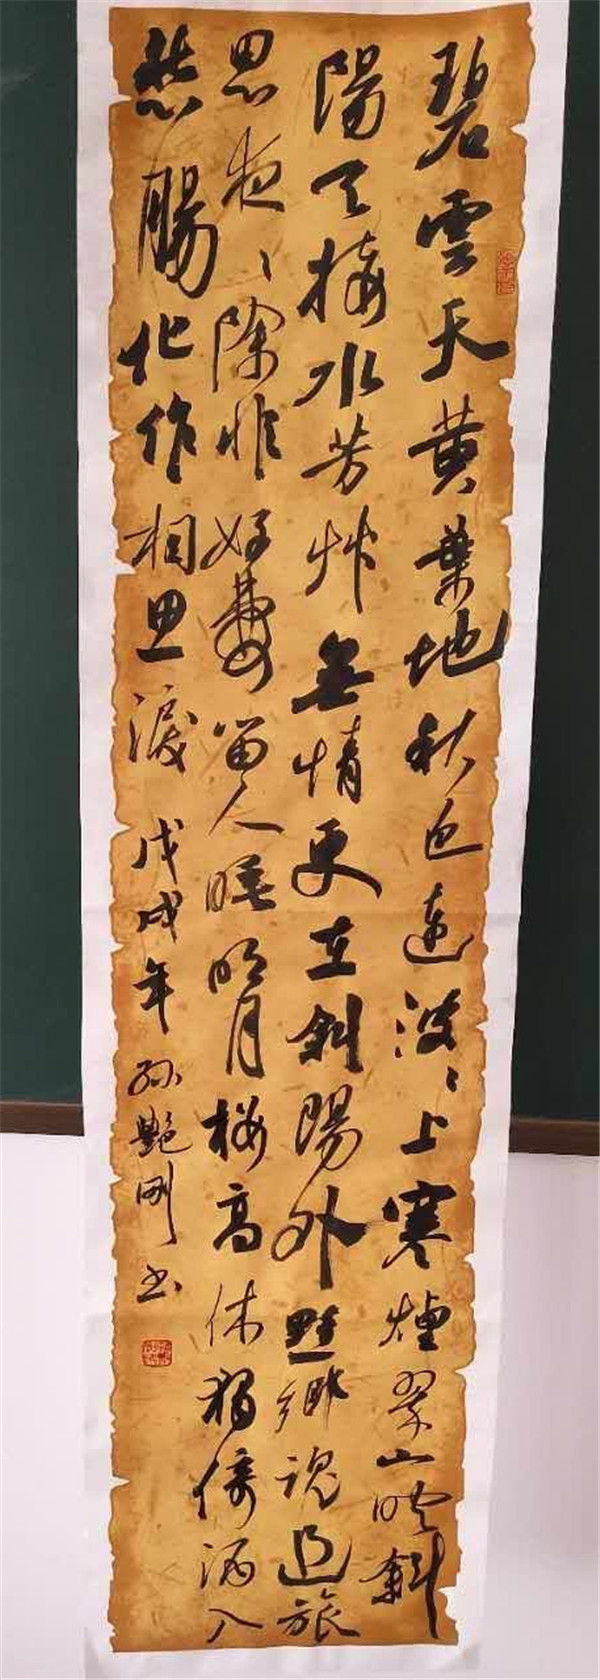 碧雲天黄葉地秋色連波〻上寒煙翠山映斜
陽天接水芳艸無情更在斜陽外黯鄉魂追旅
思夜〻除非好夢留人睡明月楼高休獨倚酒入
愁腸化作相思淚 戊戌年孙艷刚书